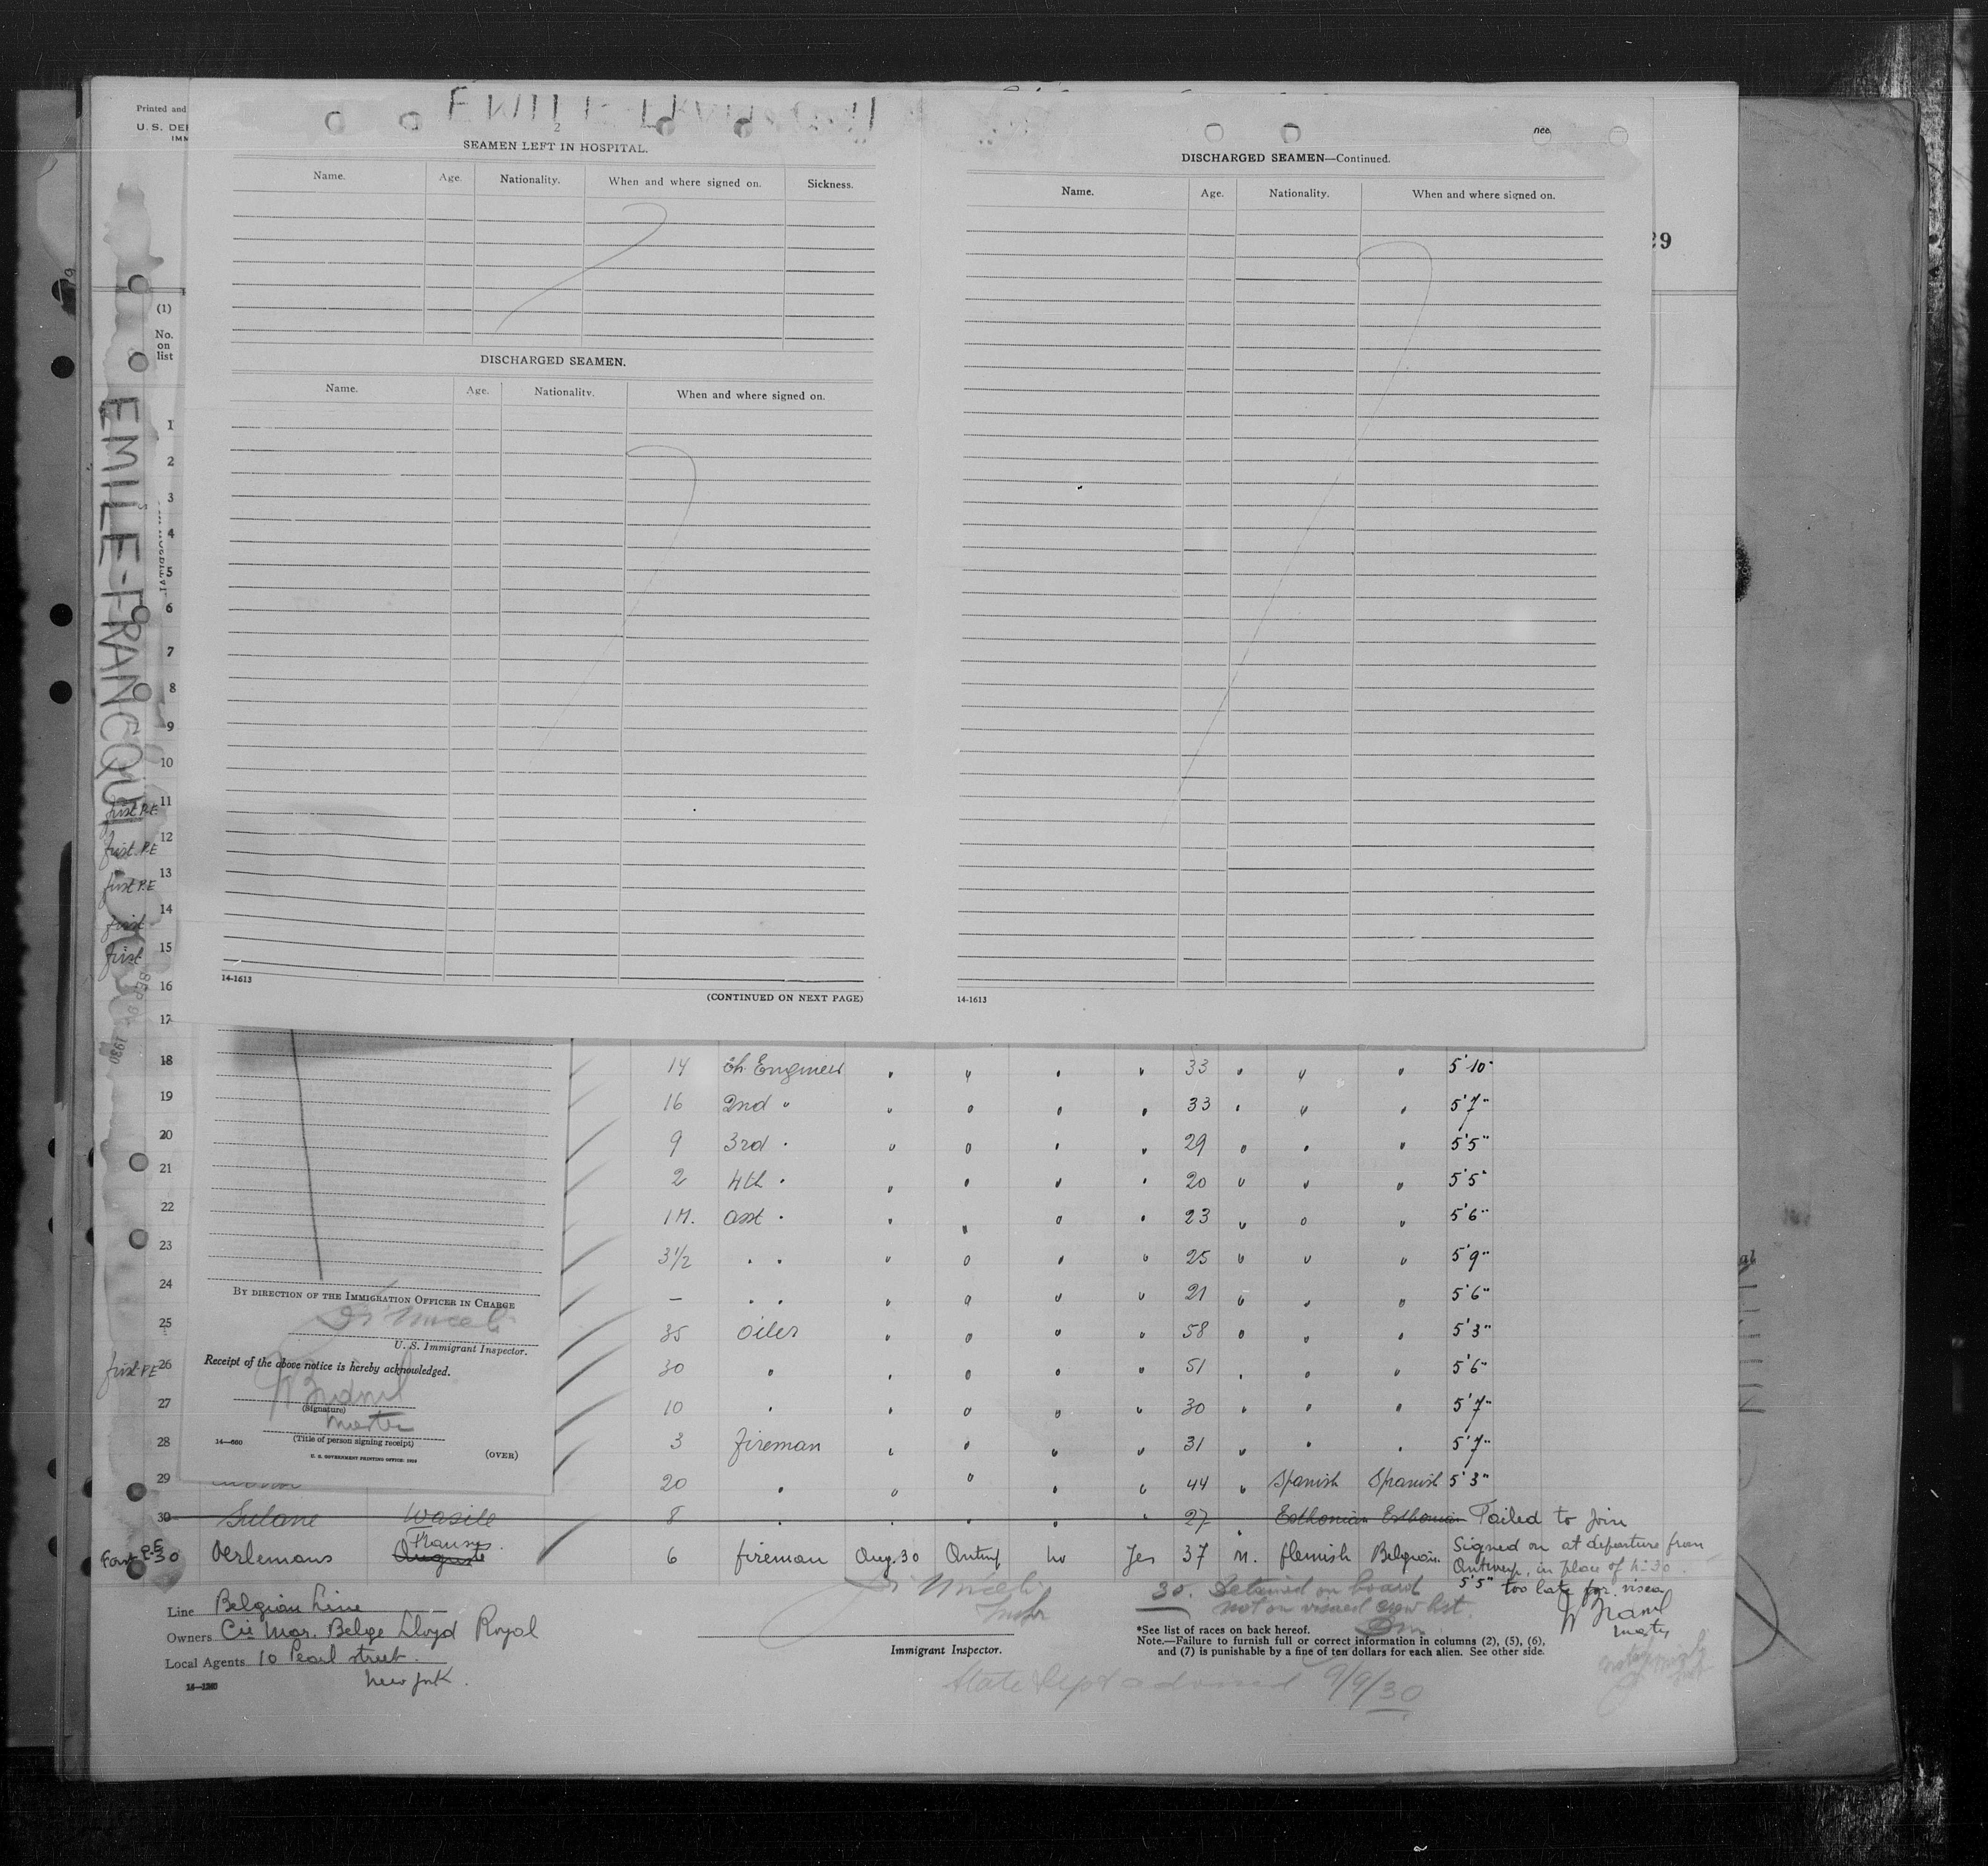 Printed and
U. S. DE
IMM
29
(1)
No.
on
list
EMILE-FRANCQUI
2
SEAMEN LEFT IN HOSPITAL.
Name. Age. Nationality. When and where signed on. Sickness.
DISCHARGED SEAMEN.
Name. Age. Nationality. When and where signed on.
14-1613
(CONTINUED ON NEXT PAGE)
DISCHARGED SEAMEN—Continued.
Name. Age. Nationality. When and where signed on.
14-1613
1
2
3
4
5
6
7
8
9
10
first P.E. 11
first P.E 12
first P.E 13
first 14
first 15
16
17
18 14 Ch Engineer " " " " 33 " " " 5'10"
19 16 2nd " " " " " 33 " " " 5'7"
20 9 3rd " " " " " 29 " " " 5'5"
21 2 4th " " " " " 20 " " " 5'5"
22 1M. asst " " " " " 23 " " " 5'6"
23 3 1/2 " " " " " " 25 " " " 5'9"
24 — " " " " " " 21 " " " 5'6"
25 35 oiler " " " " 58 " " " 5'3"
first P.E 26 30 " " " " " 51 " " " 5'6"
27 10 " " " " " 30 " " " 5'7"
28 3 fireman " " " " 31 " " " 5'7"
29 20 " " " " " 44 " Spanish Spanish 5'3"
30 Wasile 8 " " " " 27 " Esthonian Esthonian Failed to join
P.E 30 Oerlemans Auguste Frans. 6 fireman Aug.30 Antwp no Yes 37 M. flemish Belgian Signed on at departure from
Antwerp, in place of N: 30
5'5" too late for visa
master
BY DIRECTION OF THE IMMIGRATION OFFICER IN CHARGE
U. S. Immigrant Inspector.
Receipt of the above notice is hereby acknowledged.
(Signature)
master
(Title of person signing receipt)
14—660
(OVER)
U. S. GOVERNMENT PRINTING OFFICE
Line Belgian Line
Owners Cie Mar. Belge Lloyd Royal
Local Agents 10 Pearl street.
New York.
14—1240
Immigrant Inspector.
30. Detained on board
not on visaed crew list.
*See list of races on back hereof.
Note.—Failure to furnish full or correct information in columns (2), (5), (6),
and (7) is punishable by a fine of ten dollars for each alien. See other side.
State Dept advised 9/9/30